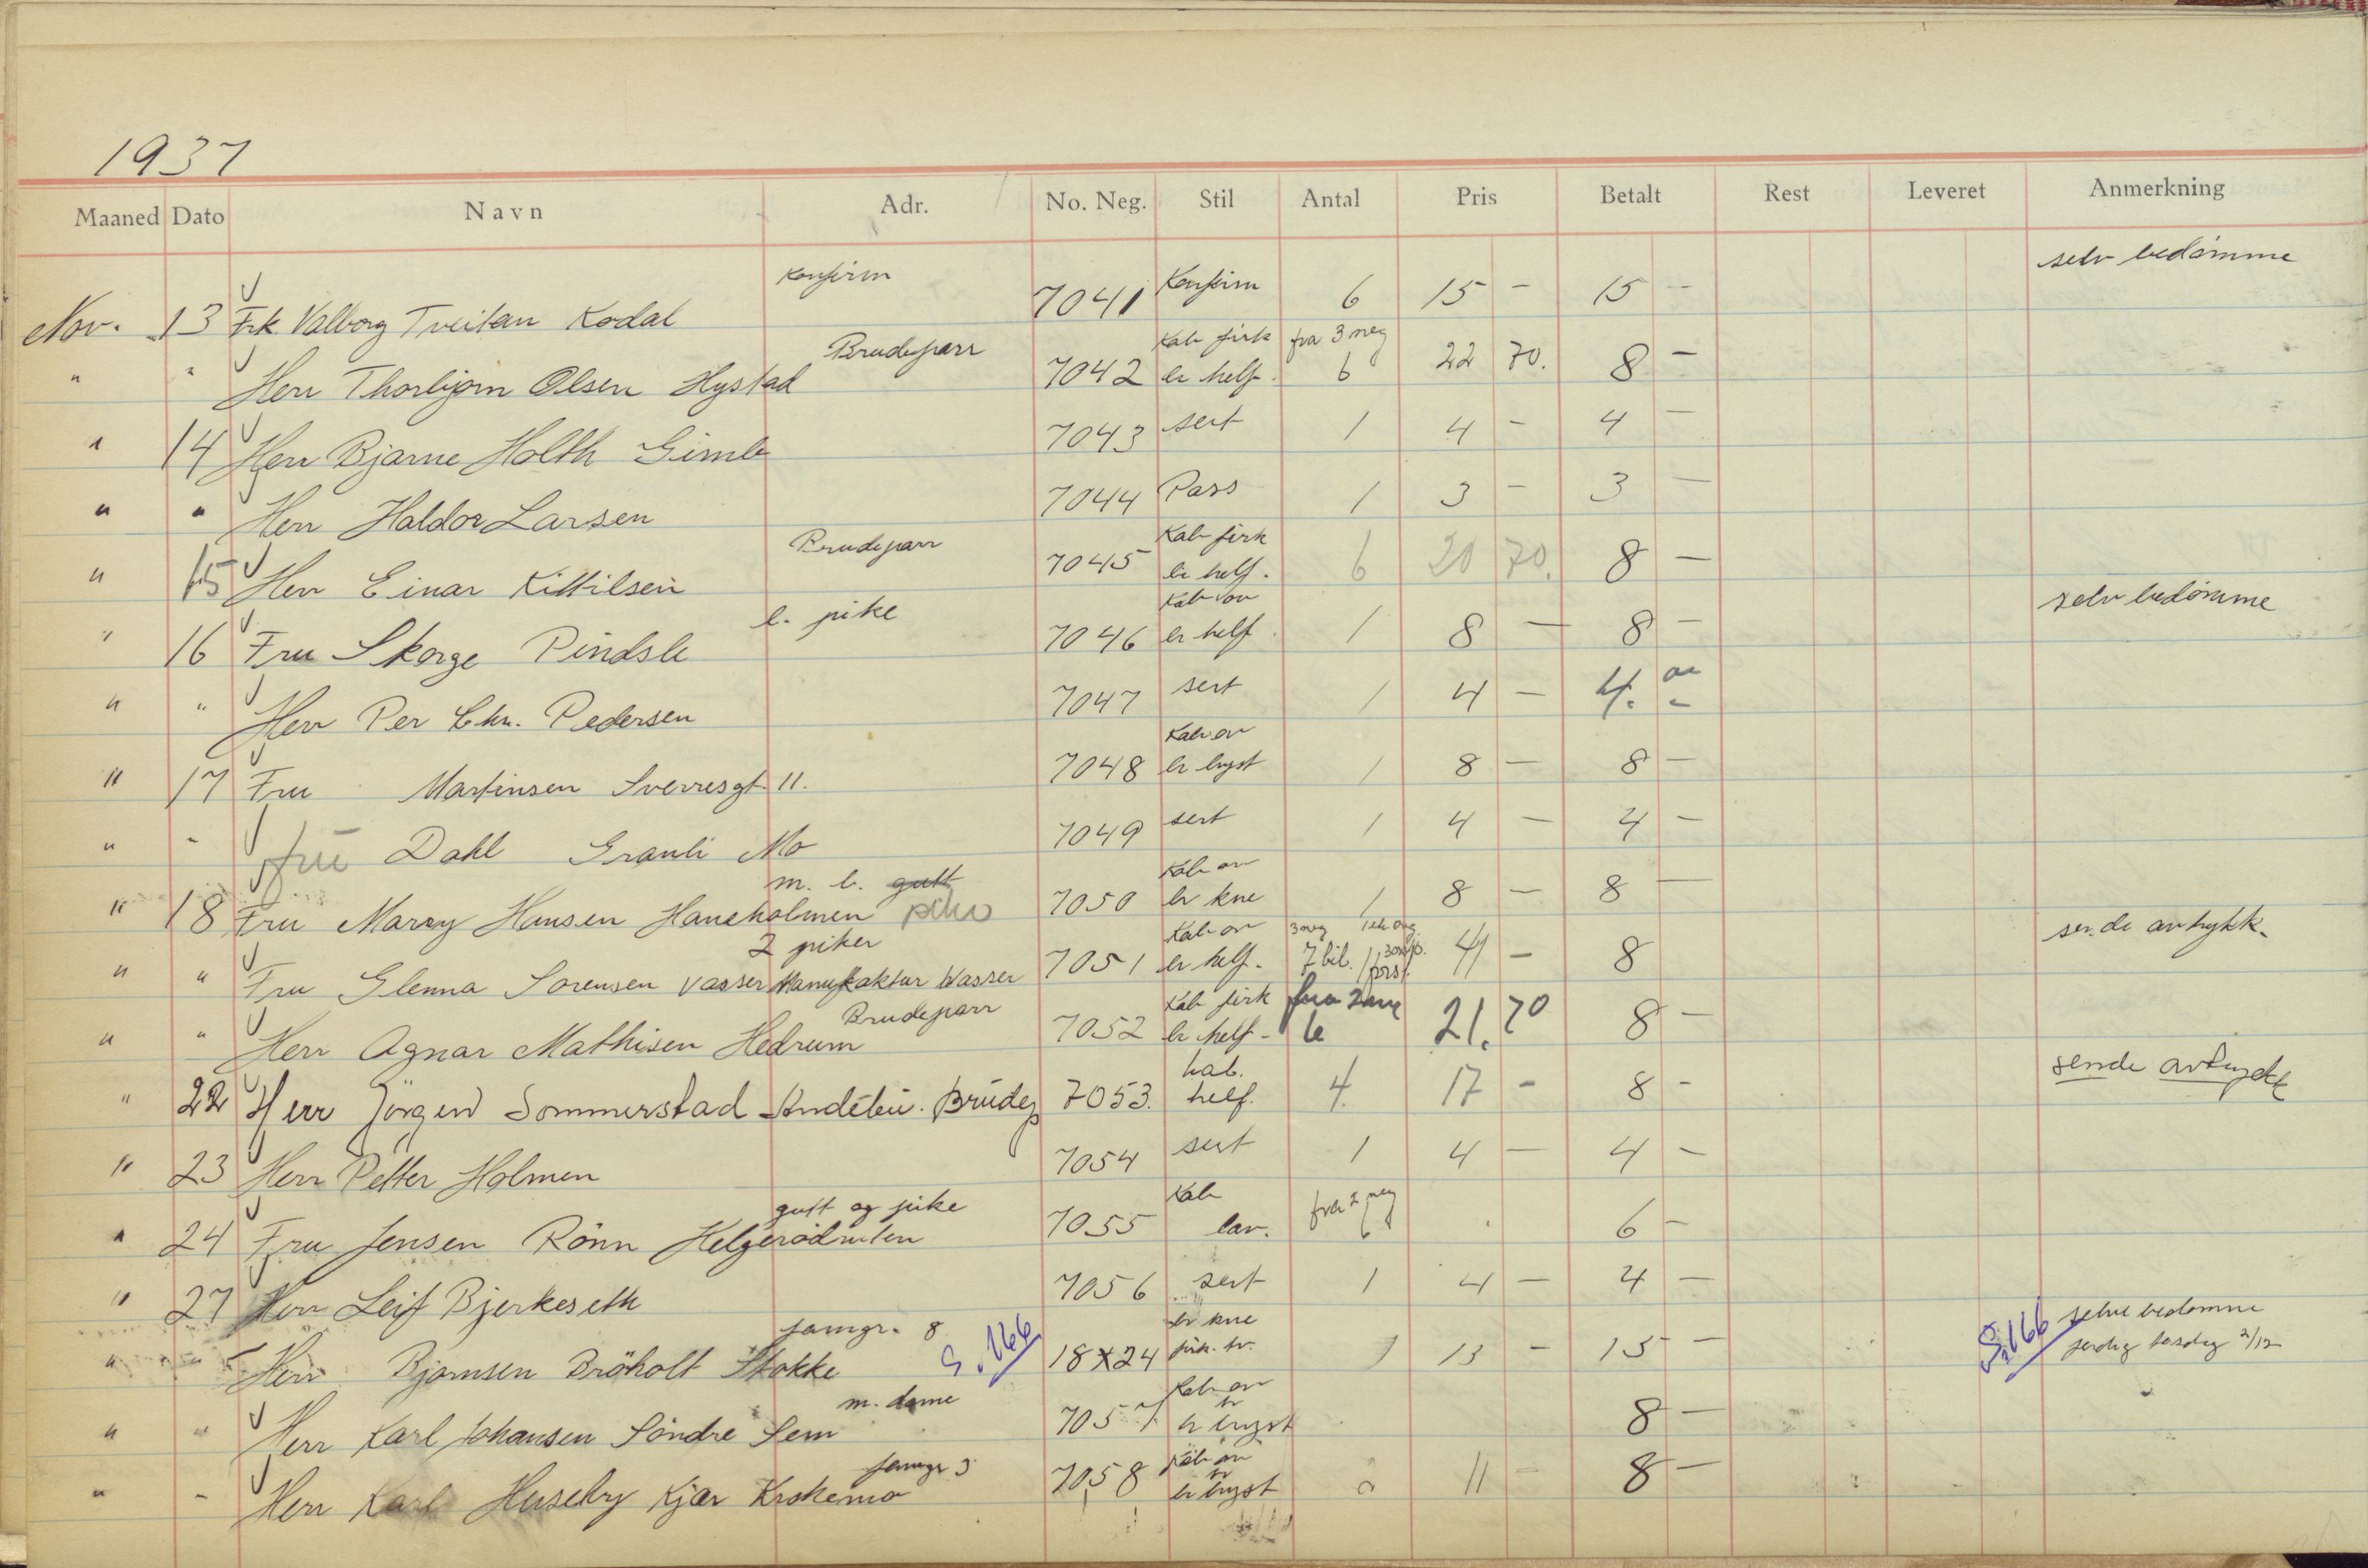 1937
Maaned Dato Navn Adr. No. Neg. Stil Antal Pris Betalt Rest Leveret Anmerkning
Konfirm selv bedömme
Nov. 13 Frk. Valborg Tveitan Kodal 7041 Konfirm 6 15 - 15 -
Brudeparr Kab firk fra 3 neg
" " Herr Thorbjørn Olsen Hystad 7042 er helf. 6 22 70. 8 -
" 14 Herr Bjarne Holth Gimle 7043 sert 1 4 - 4 -
" " Herr Haldor Larsen 7044 Pass 1 3 - 3 -
Brudeparr Kab firk
" 15 Herr Einar Kittilsen 7045 er helf. 6 20 70. 8 -
l. pike Kab ov selv bedömme
" 16 Fru Skorge Pindsle 7046 er helf. 1 8 - 8 -
" " Herr Per Chr. Pedersen 7047 sert 1 4 - 4. -
Kab ov
" 17 Fru Martinsen Sverresgt. 11. 7048 er bryst 1 8 - 8 -
" " fru Dahl Granli Mo 7049 sert 1 4 - 4 -
m. l. gutt Kab ov
" 18 Fru Marey Hansen Haneholmen pike 7050 er kne 1 8 - 8 -
2 piker Kab ov 3 neg sende avtrykk.
" " Fru Glenna Sorensen Vasser Manufaktur Vasser 7051 er helf. 7 bil. 41 - 8
Brudeparr Kab firk fra 2
" " Herr Agnar Mathisen Hedrum 7052 er helf - 6 21. 70 8 -
kab. sende avtrykk
" 22 Herr Jörgen Sommerstad Andebu. Brudep 7053. helf. 4. 17 - 8 -
" 23 Herr Petter Holmen 7054 sert 1 4 - 4 -
gutt og pike Kab fra 2 neg
" 24 Fru Jensen Rönn Helgerödruten 7055 lav. 6 6 -
" 27 Herr Leif Bjerkeseth 7056 sert 1 4 - 4 -
famgr. 8 S. 166 er kne S. 166 selv bedomme
" " Herr Bjornsen Bröholt Stokke 18x24 firk. br. 1 15 - 15 - ferdig tirsdag 2/12
m. dame Kab ov
" " Herr Karl Johansen Söndre Sem 7057 er br bryst 8 -
famgr 3 Kab ov
" " Herr Karl Huseby Kjær Krokemo 7058 er br bryst 2 11 - 8 -